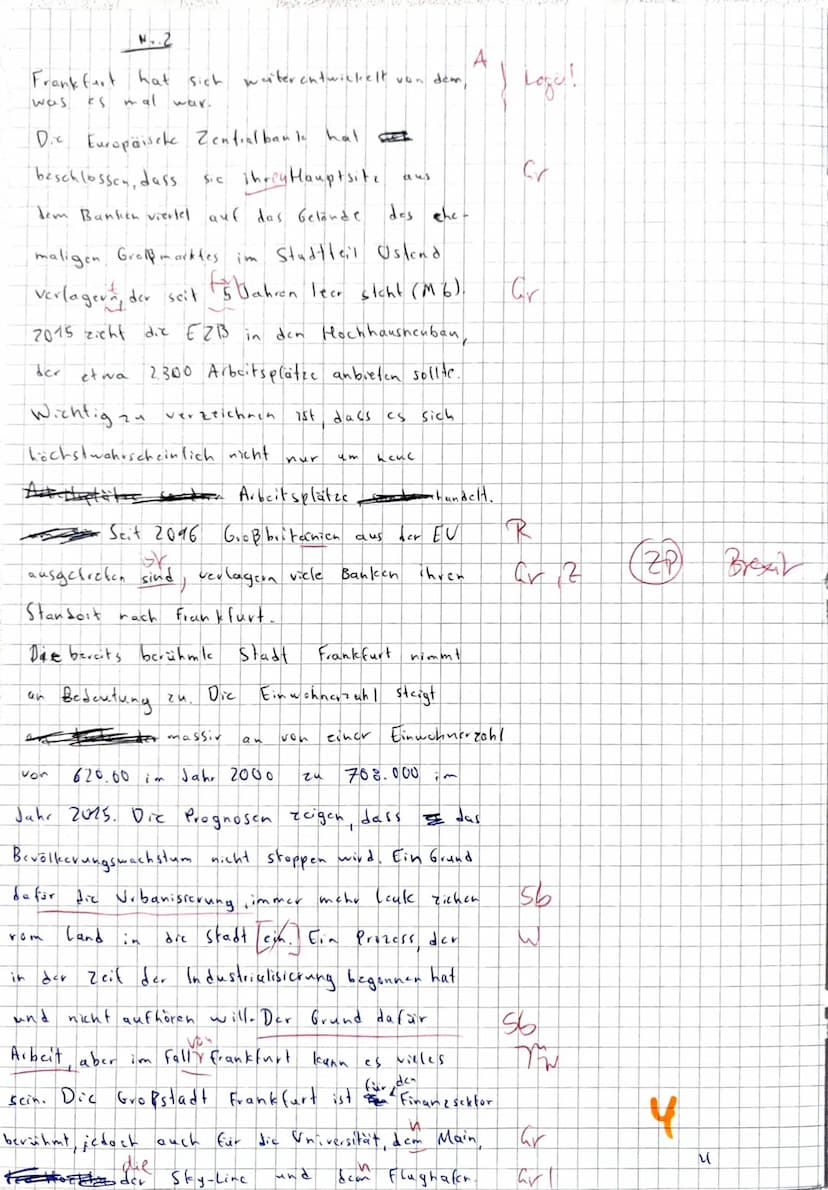 Nr. 2
Frankfurt hat sich weiterentwickelt von dem, A Logi!
was es mal war.
Die Europäische Zentralbank hat
beschlossen, dass sie ihren Hauptsitz aus Gr
dem Bankenviertel auf das Gelände des ehe-
maligen Großmarktes im Stadtteil Ostend
verlagern, der seit 5 Jahren leer steht (M6). Gr
2015 zieht die EZB in den Hochhausneubau,
der etwa 2.300 Arbeitsplätze anbieten sollte.
Wichtig zu verzeichnen ist, dass es sich
höchstwahrscheinlich nicht nur um neue
Arbeitsplätze handelt.
Seit 2016 Großbritanien aus der EU R
ausgetreten sind, verlagern viele Banken ihren Gr, Z ZP Brexit
Standort nach Frankfurt.
Die bereits berühmte Stadt Frankfurt nimmt
an Bedeutung zu. Die Einwohnerzahl steigt
massiv an von einer Einwohnerzahl
von 620.00 im Jahr 2000 zu 708.000 im
Jahr 2015. Die Prognosen zeigen, dass das
Bevölkerungswachstum nicht stoppen wird. Ein Grund
dafür die Urbanisierung, immer mehr Leute ziehen Sb
vom Land in die Stadt [ein.] Ein Prozess, der W
in der Zeit der Industrialisierung begonnen hat
und nicht aufhören will. Der Grund dafür Sb
von
Arbeit, aber im Fall Frankfurt kann es vieles W
für den
sein. Die Großstadt Frankfurt ist Finanzsektor
4
berühmt, jedoch auch für die Universität, dem n Main, Gr
4
die
der Sky-Line und dem n Flughafen. Gr!